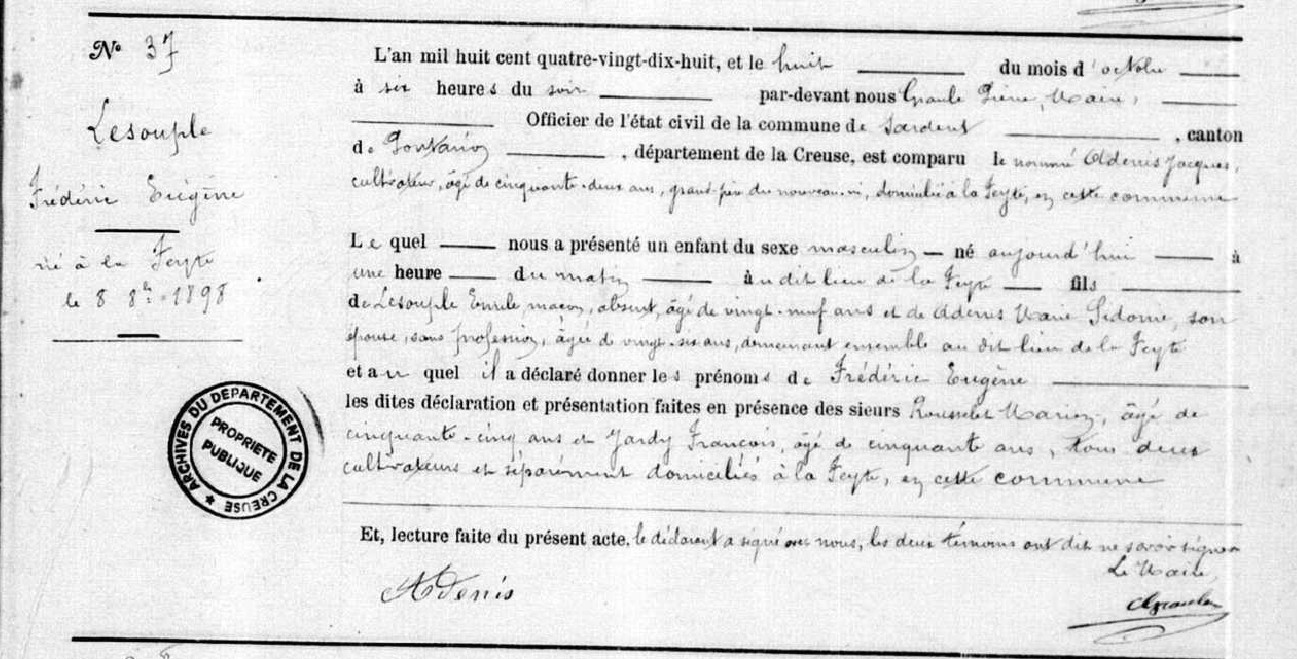 N° 37
Lesouple
Frédéric Eugène
né à la Feyte
le 8 8bre 1898
ARCHIVES DU DEPARTEMENT DE LA CREUSE
PROPRIETE
PUBLIQUE
L'an mil huit cent quatre-vingt-dix-huit, et le huit du mois d'octobre
à six heures du soir par-devant nous Graule Pierre, Maire,
Officier de l'état civil de la commune de Sardent, canton
de Pontarion, département de la Creuse, est comparu le nommé Adenis Jacques,
cultivateur, âgé de cinquante-deux ans, grand-père du nouveau-né, domicilié à la Feyte, en cette commune
Le quel nous a présenté un enfant du sexe masculin né aujourd'hui à
une heure du matin au dit lieu de la Feyte fils
de Lesouple Emile, maçon, absent, âgé de vingt-neuf ans et de Adenis Marie Sidonie, son
épouse, sans profession, âgée de vingt-six ans, demeurant ensemble au dit lieu de la Feyte
et au quel il a déclaré donner les prénoms de Frédéric Eugène
les dites déclaration et présentation faites en présence des sieurs Rousselet Marien, âgé de
cinquante-cinq ans et Jardy François, âgé de cinquante ans, tous deux
cultivateurs et séparément domiciliés à la Feyte, en cette commune
Et, lecture faite du présent acte, le déclarant a signé avec nous, les deux témoins ont dit ne savoir signer
Le Maire,
Adenis